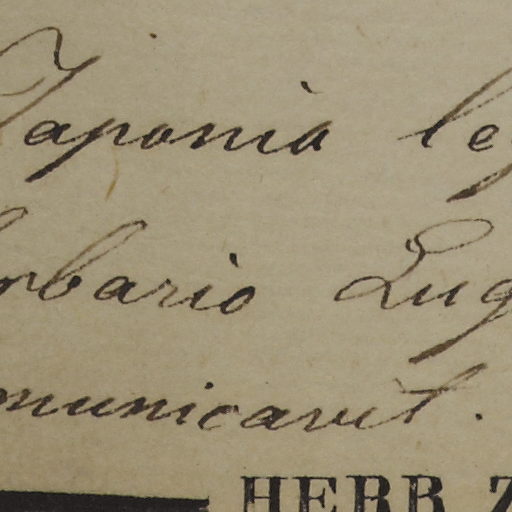 Japonia leg
erbario Lug
municavit.
HERB. Z